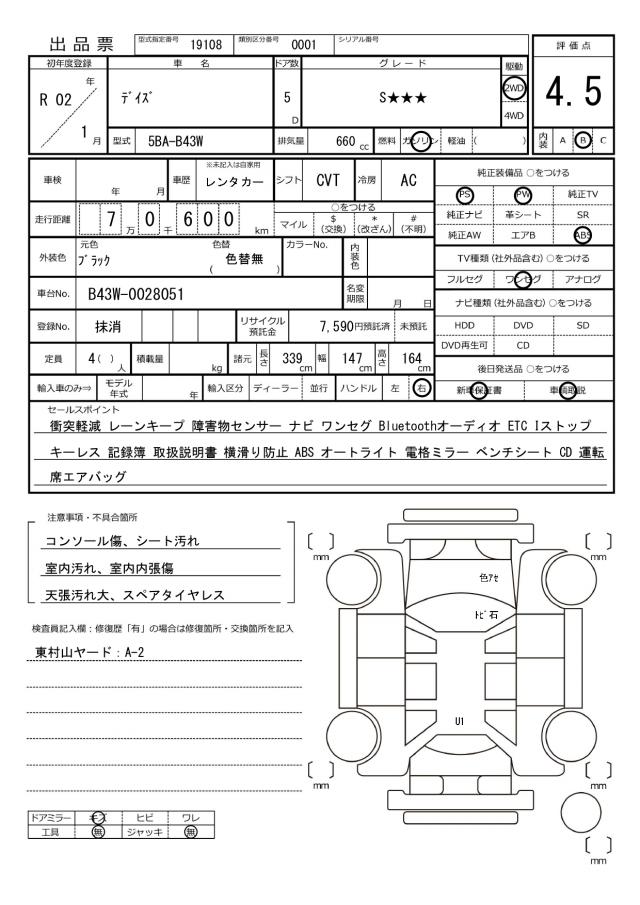 出品票 型式指定番号 19108 類別区分番号 0001 シリアル番号
評価点
4.5
内装 A B C
初年度登録 車名 ドア数 グレード 駆動
R 02 年 1 月 ﾃﾞｲｽﾞ 5 D S★★★ 2WD 4WD
型式 5BA-B43W 排気量 660 cc 燃料 ガソリン 軽油 ( )
車検 年 月 車歴 ※未記入は自家用 レンタカー シフト CVT 冷房 AC
走行距離 7 万 0 千 6 0 0 km
○をつける
マイル $ (交換) * (改ざん) # (不明)
外装色 元色 ﾌﾞﾗｯｸ 色替 ( 色替無 ) カラーNo. 内装色
車台No. B43W-0028051 名変期限 月 日
登録No. 抹消 リサイクル預託金 7,590円預託済 未預託
定員 4( ) 人 積載量 kg 諸元 長さ 339 cm 幅 147 cm 高さ 164 cm
輸入車のみ⇒ モデル年式 年 輸入区分 ディーラー 並行 ハンドル 左 右
純正装備品 ○をつける
PS PW 純正TV
純正ナビ 革シート SR
純正AW エアB ABS
TV種類 (社外品含む) ○をつける
フルセグ ワンセグ アナログ
ナビ種類 (社外品含む) ○をつける
HDD DVD SD
DVD再生可 CD
後日発送品 ○をつける
新車保証書 車輌取説
セールスポイント
衝突軽減 レーンキープ 障害物センサー ナビ ワンセグ Bluetoothオーディオ ETC Iストップ
キーレス 記録簿 取扱説明書 横滑り防止 ABS オートライト 電格ミラー ベンチシート CD 運転
席エアバッグ
注意事項・不具合箇所
コンソール傷、シート汚れ
室内汚れ、室内内張傷
天張汚れ大、スペアタイヤレス
検査員記入欄：修復歴「有」の場合は修復箇所・交換箇所を記入
東村山ヤード：A-2
ドアミラー キズ ヒビ ワレ
工具 無 ジャッキ 無
mm
mm
色ｱｾ
ﾄﾋﾞ石
U1
mm
mm
mm